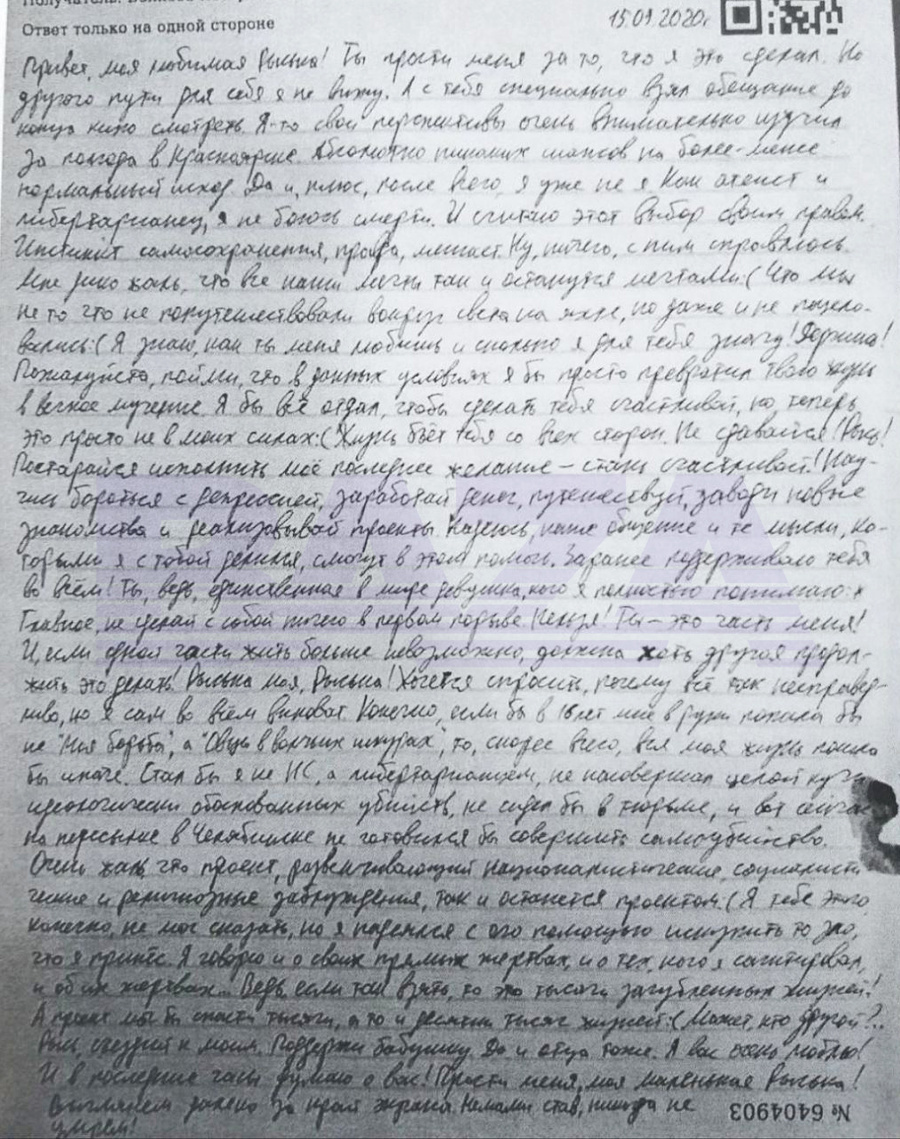 Ответ только на одной стороне
15.09.2020г
Привет, моя любимая Рыська! Ты прости меня за то, что я это сделал. Но
другого пути для себя я не вижу. А с тебя специально взял обещание до
конца кино смотреть. Я-то свои перспективы очень внимательно изучил
за полгода в Красноярске. Абсолютно никаких шансов на более-менее
нормальный исход. Да и, плюс, после всего, я уже не я. Как атеист и
либертарианец, я не боюсь смерти. И считаю этот выбор своим правом.
Инстинкт самосохранения, правда, мешает. Ну, ничего, с ним справлюсь.
Мне дико жаль, что все наши мечты так и останутся мечтами:( Что мы
не то что не попутешествовали вокруг света на яхте, но даже и не поцело-
вались:( Я знаю, как ты меня любишь и сколько я для тебя значу!
Пожалуйста, пойми, что в данных условиях я бы просто превратил твою жизнь
в вечное мучение. Я бы всё отдал, чтобы сделать тебя счастливой, но, теперь
это просто не в моих силах:( Жизнь бьёт тебя со всех сторон. Не сдавайся! Рысь!
Постарайся исполнить моё последнее желание – стань счастливой! Нау-
чись бороться с депрессией, заработай денег, путешествуй, заводи новые
знакомства и реализовывай проекты. Надеюсь, наше общение и те мысли, ко-
торыми я с тобой делился, смогут в этом помочь. Заранее поддерживаю тебя
во всём! Ты, ведь, единственная в мире девушка, кого я полностью понимаю:*
Главное, не сделай с собой ничего в первом порыве. Нельзя! Ты – это часть меня!
И, если одной части жить больше невозможно, должна хоть другая продол-
жить это делать! Рыська моя, Рыська! Хочется спросить, почему всё так несправед-
ливо, но я сам во всём виноват. Конечно, если бы в 16 лет мне в руки попала бы
не "Моя борьба", а "Овцы в волчьих шкурах", то, скорее всего, вся моя жизнь пошла
бы иначе. Стал бы я не НС, а либертарианцем, не насовершал целой кучи
идеологически обоснованных убийств, не сидел бы в тюрьме, и вот сейчас
на пересылке в Челябинске не готовился бы совершить самоубийство.
Очень жаль, что проект, развенчивающий националистические, социалисти-
ческие и религиозные заблуждения, так и останется проектом:( Я тебе этого,
конечно, не мог сказать, но я надеялся с его помощью искупить то зло,
что я принёс. Я говорю и о своих прямых жертвах, и о тех, кого я сагитировал,
и об их жертвах... Ведь, если так взять, то это тысячи загубленных жизней!
А проект мог бы спасти тысячи, а то и десятки тысяч жизней:( Может, кто другой?..
Рысь, съезди к моим. Поддержи бабушку. Да и отца тоже. Я вас очень люблю!
И в последние часы думаю о вас! Прости меня, моя маленькая Рыська!
Выглянем далеко за край экрана. Нами став, никогда не
умрём!
№ 6404903
BAZA